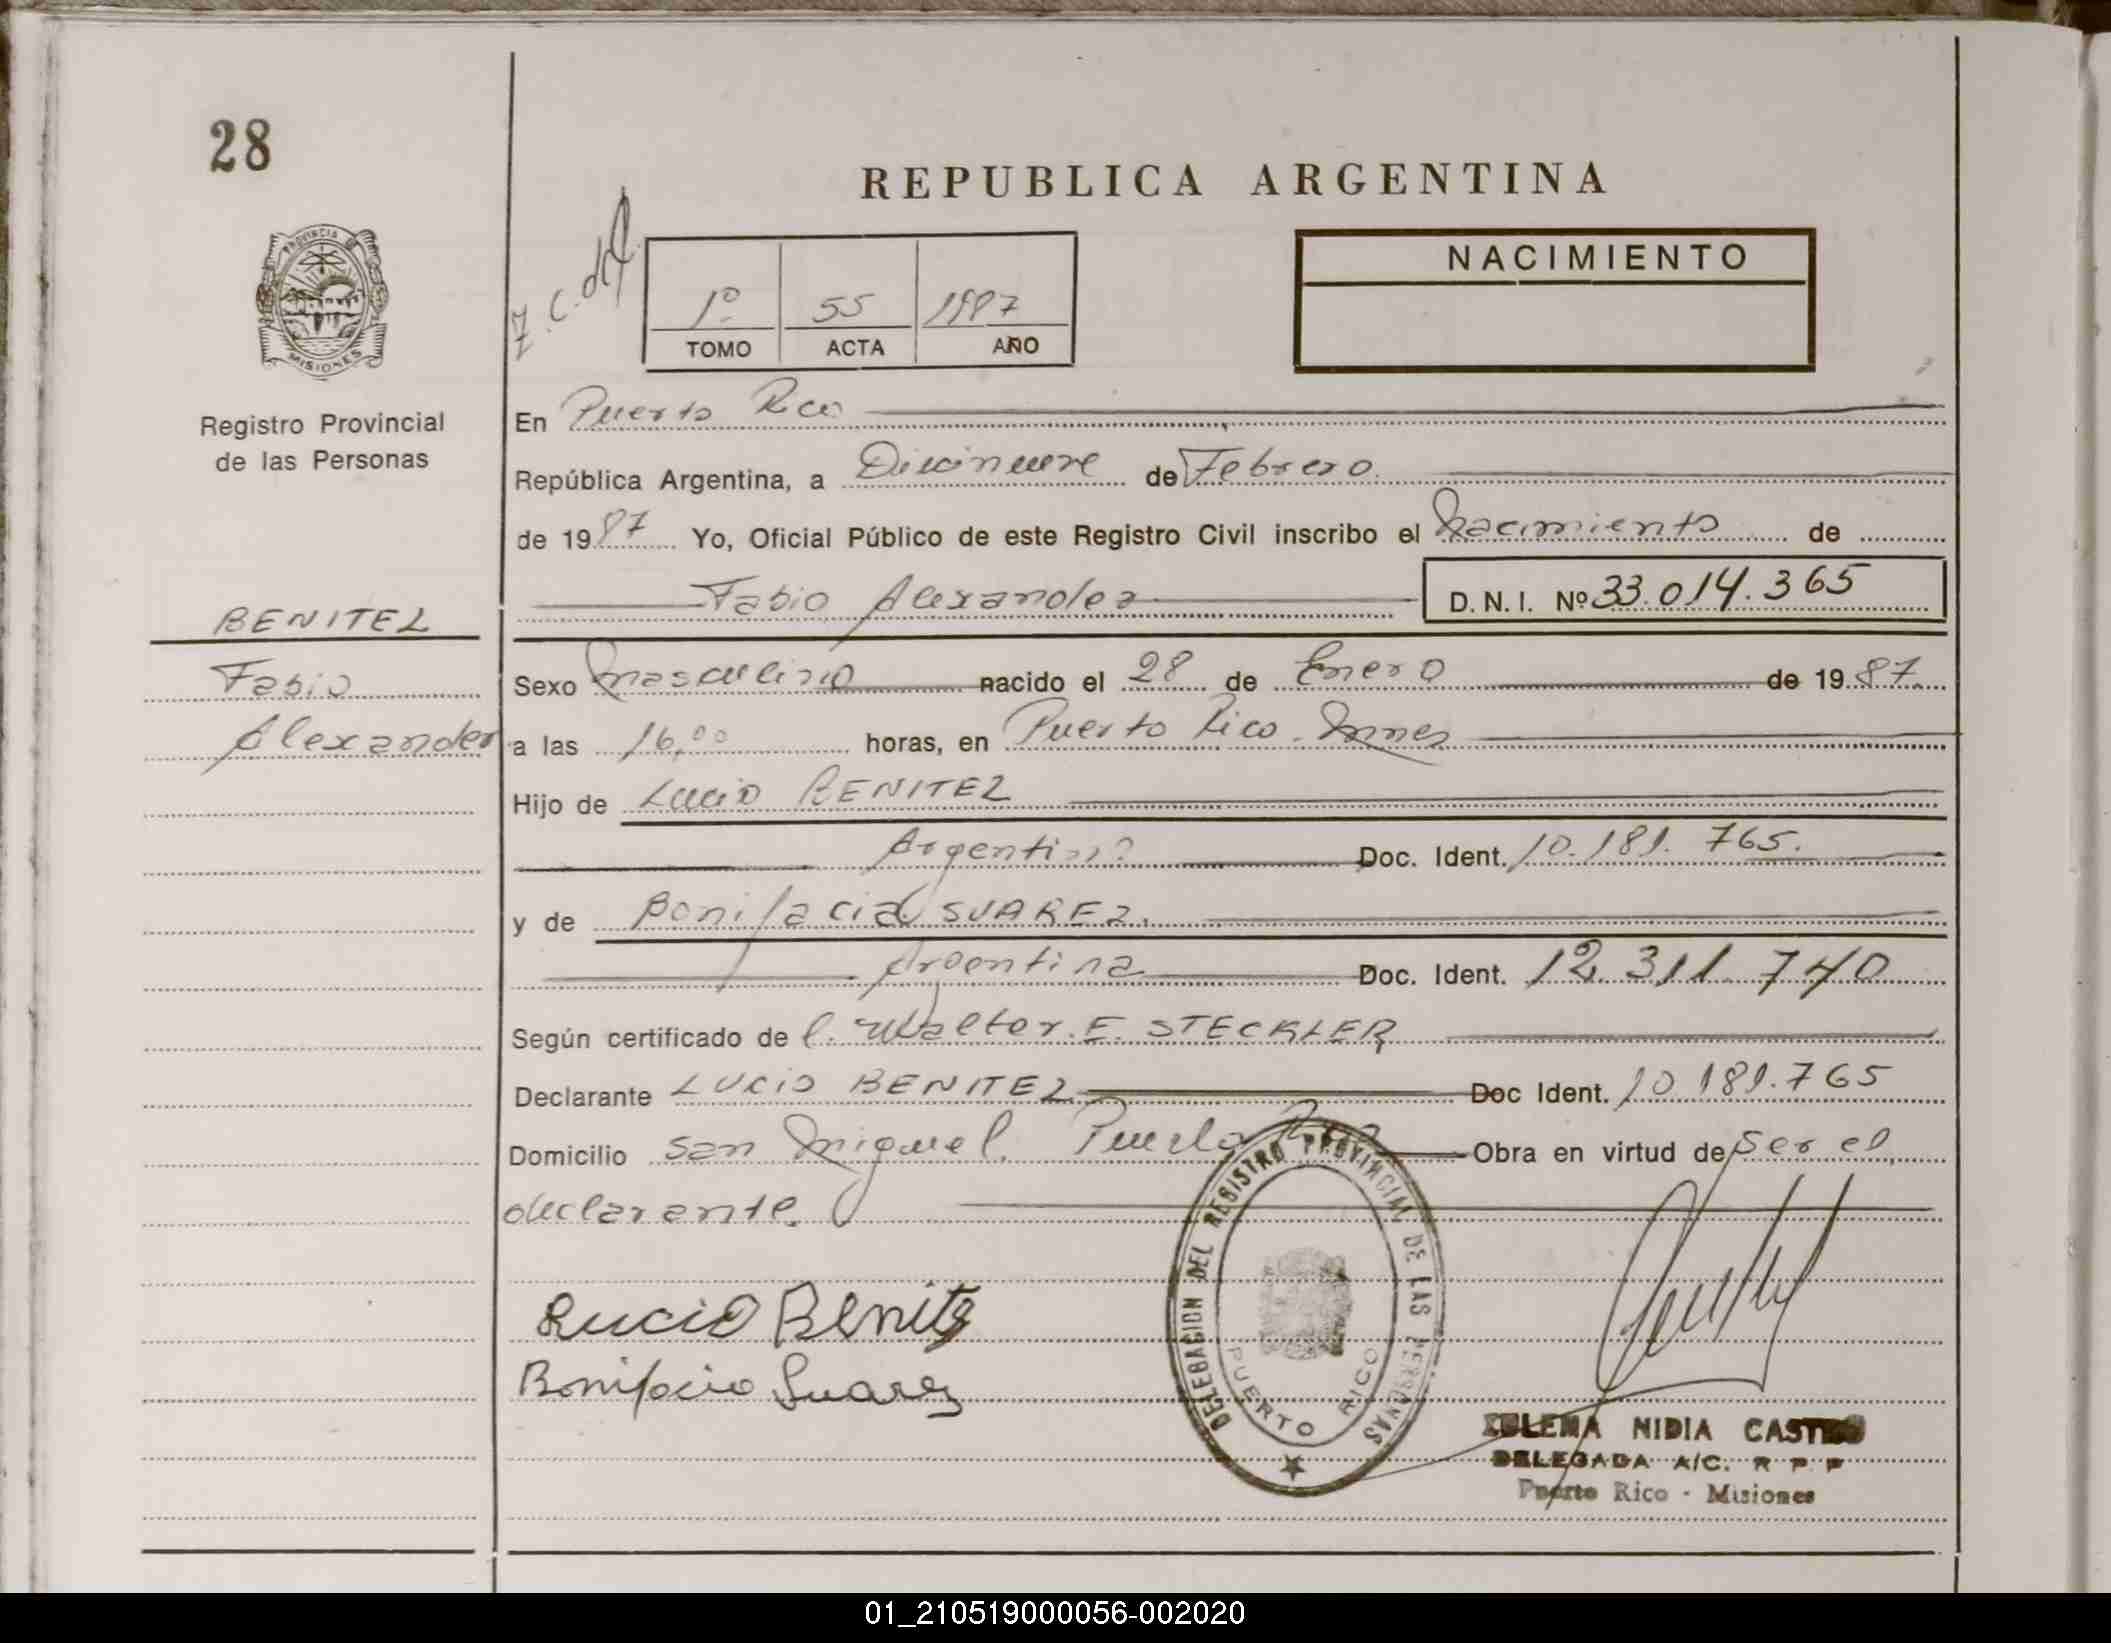 28
REPUBLICA ARGENTINA
PROVINCIA DE
MISIONES
Registro Provincial
de las Personas
1º 55 1987
TOMO ACTA AÑO
NACIMIENTO
En Puerto Rico
República Argentina, a Diecinueve de Febrero.
de 1987 Yo, Oficial Público de este Registro Civil inscribo el Nacimiento de
Fabio Alexander D.N.I. Nº 33.014.365
BENITEZ
Fabio
Alexander
Sexo Masculino nacido el 28 de Enero de 1987.
a las 16,00 horas, en Puerto Rico. Mnes
Hijo de Lucio BENITEZ
Argentino Doc. Ident. 10.181.765.
y de Bonifacia SUAREZ.
Argentina Doc. Ident. 12.311.740
Según certificado de Walter. E. STECKLER
Declarante LUCIO BENITEZ Doc Ident. 10.181.765
Domicilio San Miguel. Puerto Rico Obra en virtud de ser el
declarante.
Lucio Benitez
Bonifacia Suarez
DELEGACION DEL REGISTRO PROVINCIAL DE LAS PERSONAS
PUERTO RICO
ZULEMA NIDIA CASTRO
DELEGADA A/C. R P P
Puerto Rico - Misiones
01_210519000056-002020